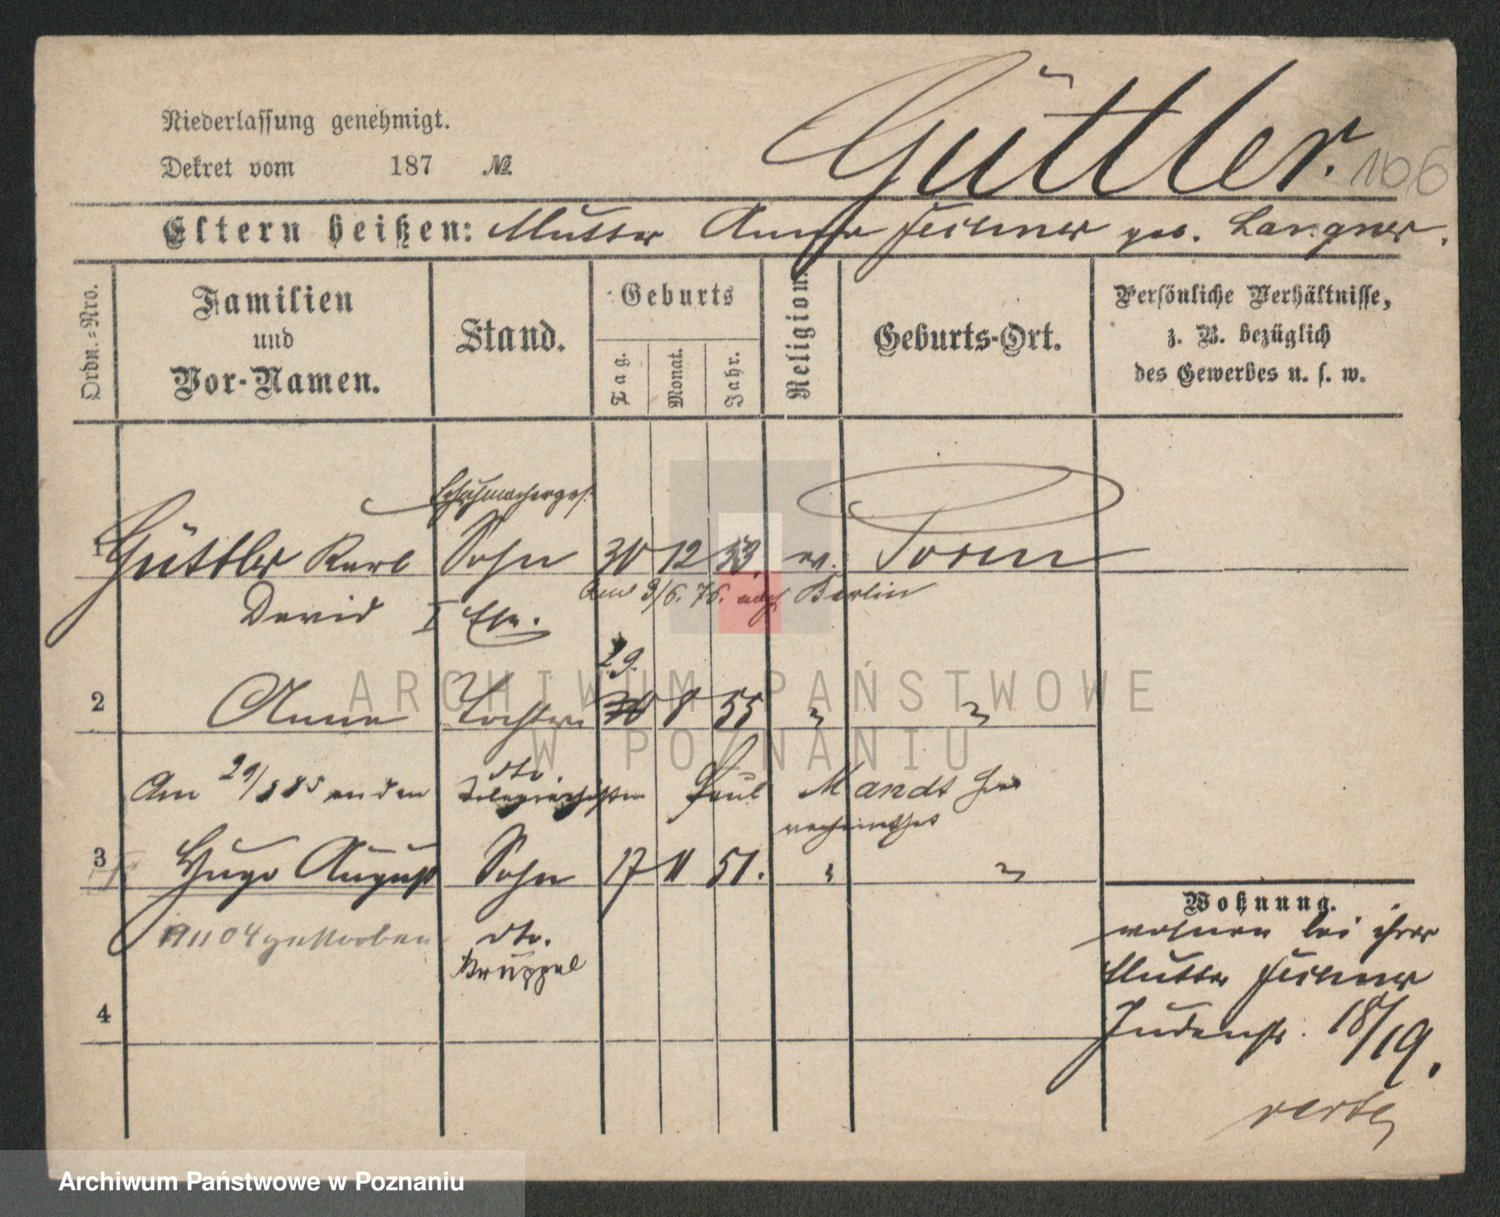 Güttler. 106
Niederlassung genehmigt.
Dekret vom 187 №
Eltern heißen: Mutter Anna Fellmer geb. Langner.
Ordn.-Nro.
Familien
und
Vor-Namen.
Stand.
Geburts
Tag.
Monat.
Jahr.
Religion
Geburts-Ort.
Persönliche Verhältnisse,
z. B. bezüglich
des Gewerbes u. s. w.
Schuhmacherges.
1 Güttler Karl Sohn 30 12 53. ev. Posen
Am 3/6. 76. nach Berlin
David I
29.
2 Anna Tochter 8 55 " "
dto.
Am 29/ 885 an den Telegraphisten Paul Mandt hier
verheirathet
3 Hugo August Sohn 17 11 51. " "
19 11 04 gestorben dto.
Krüppel
4
Wohnung.
wohnen bei ihrer
Mutter Fellmer
Judenstr. 18/19.
ARCHIWUM PAŃSTWOWE
W POZNANIU
Archiwum Państwowe w Poznaniu